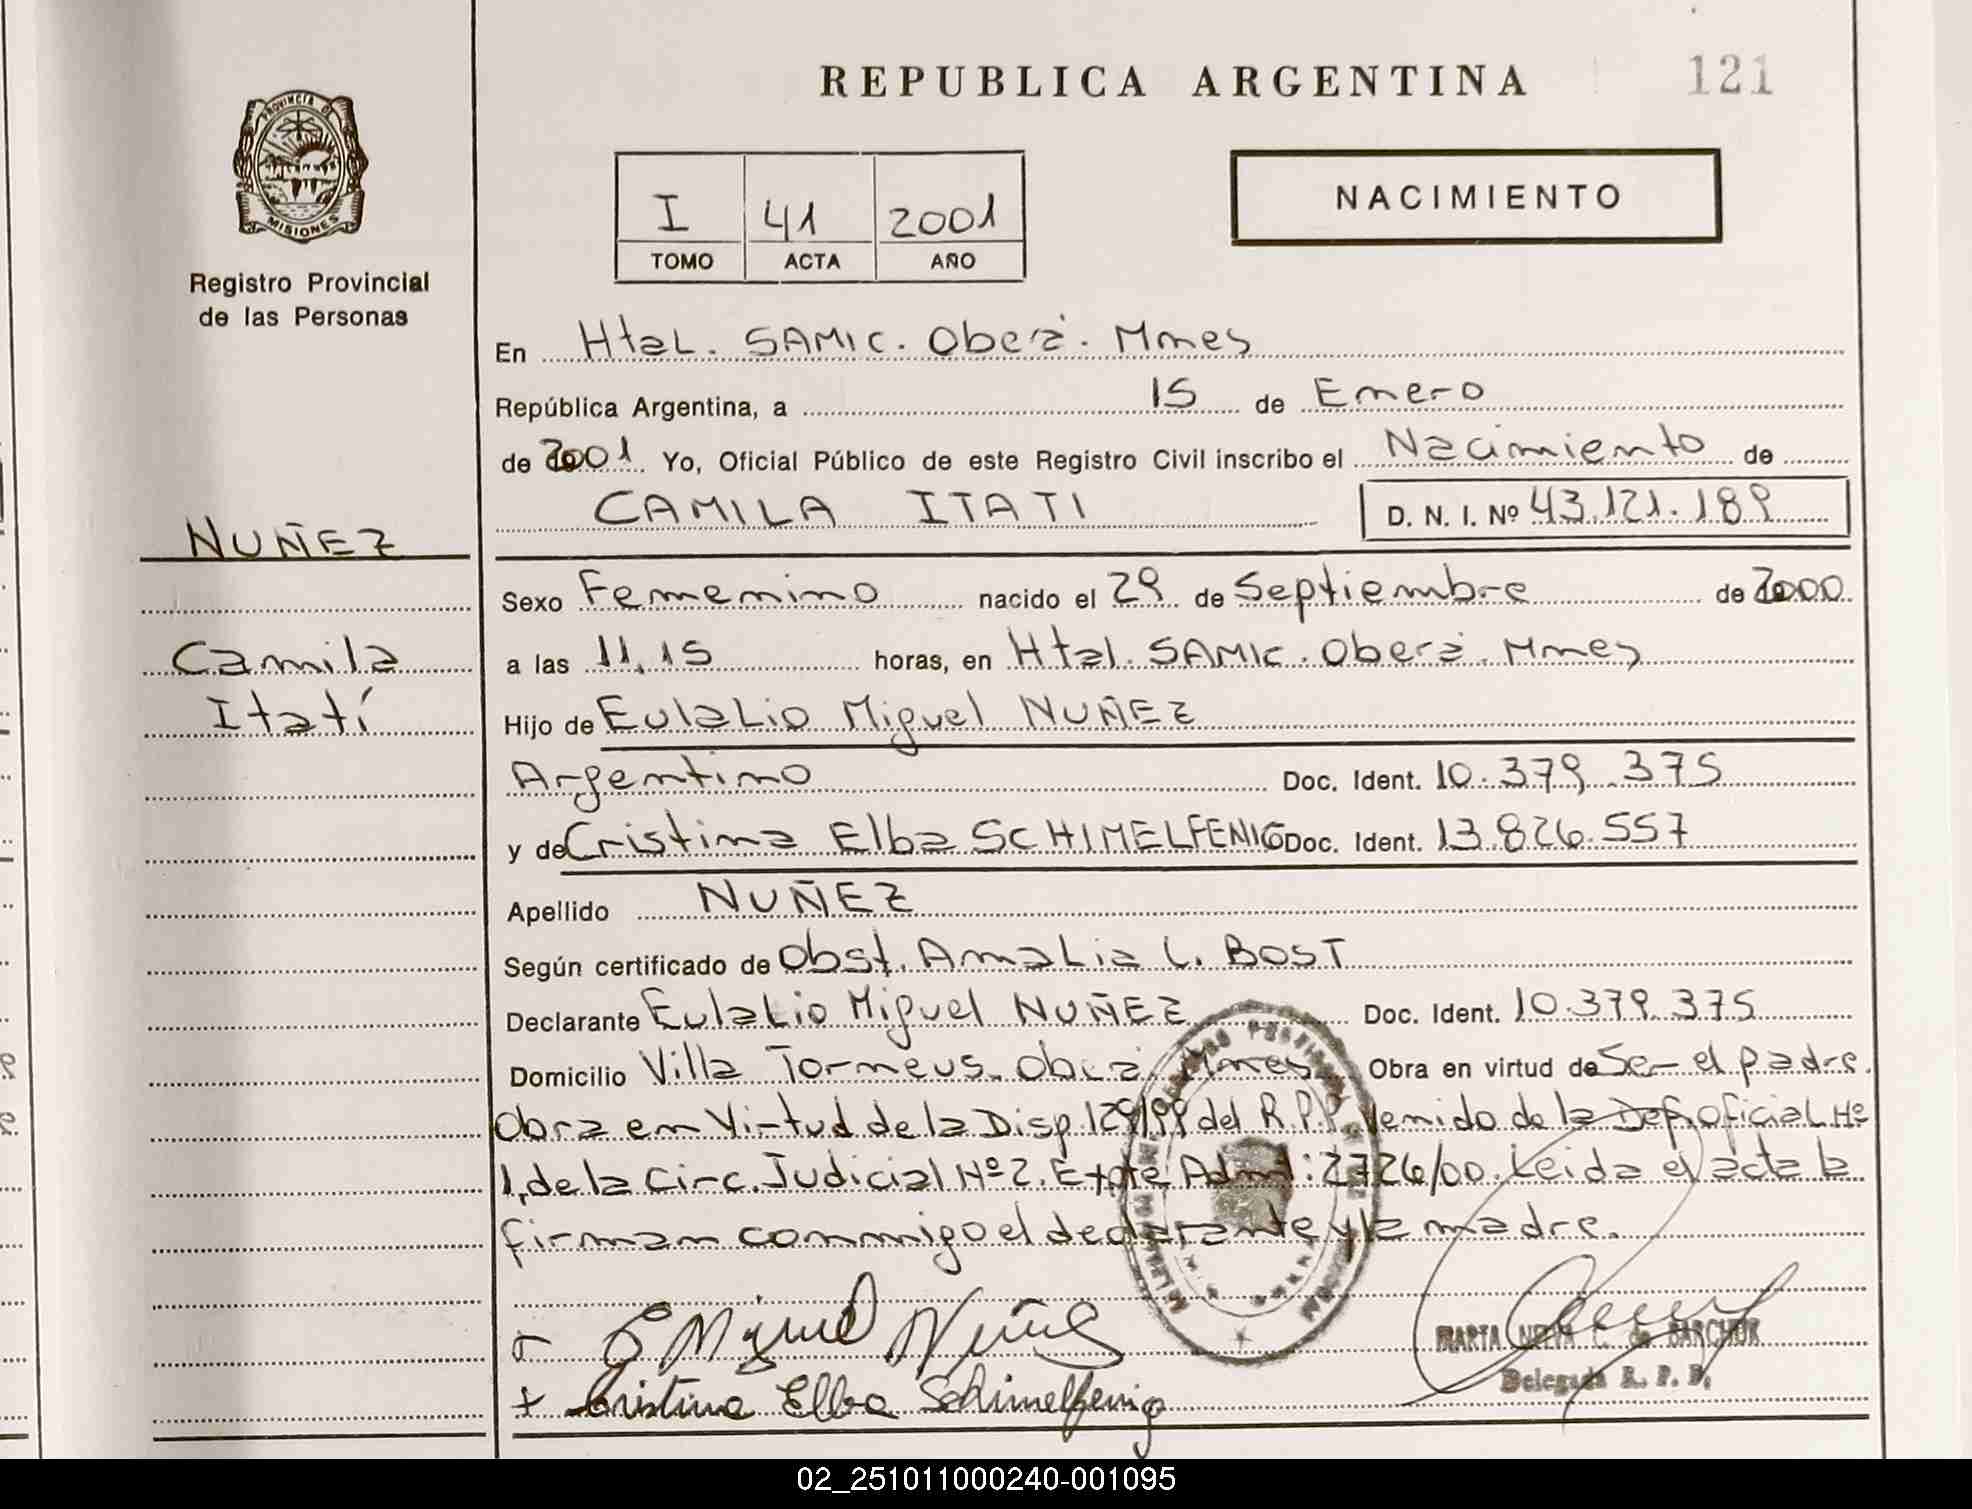 REPUBLICA ARGENTINA
121
PROVINCIA DE
MISIONES
Registro Provincial
de las Personas
I 41 2001
TOMO ACTA AÑO
NACIMIENTO
En Htal. SAMIC. Oberá. Mnes
República Argentina, a 15 de Enero
de 2001. Yo, Oficial Público de este Registro Civil inscribo el Nacimiento de
CAMILA ITATI D. N. I. Nº 43.121.189
NUÑEZ
Camila
Itatí
Sexo Femenino nacido el 29 de Septiembre de 2000
a las 11,15 horas, en Htal. SAMIC. Oberá. Mnes
Hijo de Eulalio Miguel NUÑEZ
Argentino Doc. Ident. 10.379.375
y de Cristina Elba SCHIMELFENIG Doc. Ident. 13.826.557
Apellido NUÑEZ
Según certificado de Obst. Amalia L. BOST
Declarante Eulalio Miguel NUÑEZ Doc. Ident. 10.379.375
Domicilio Villa Torneus. Oberá. Mnes Obra en virtud de Ser el padre.
Obra en Virtud de la Disp 129/99 del R.P.P. Venido de la Def. oficial Nº
1, de la Circ. Judicial Nº 2. Expte Admt: 2726/00. Leida el acta la
firman conmigo el declarante y la madre.
E Miguel Nuñez
+ Cristina Elba Schimelfenig
MARTA C. de BARCHUK
Delegada R. P. P.
02_251011000240-001095